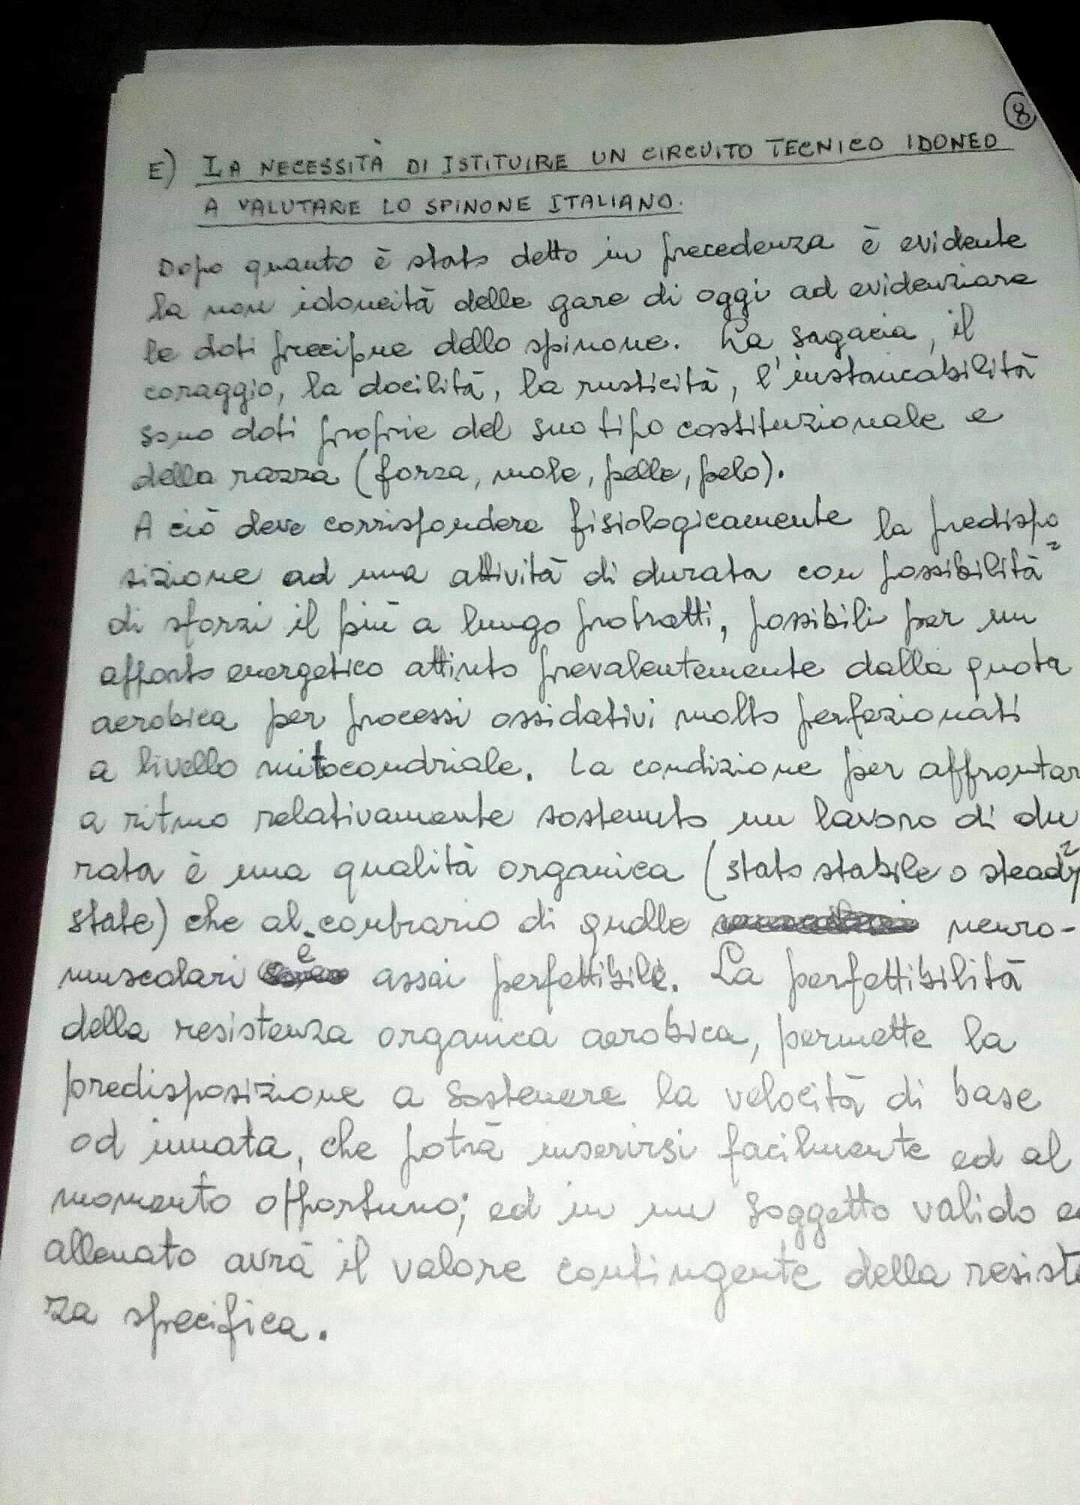 8
E) LA NECESSITÀ DI ISTITUIRE UN CIRCUITO TECNICO IDONEO
A VALUTARE LO SPINONE ITALIANO.
Dopo quanto è stato detto in precedenza è evidente
la non idoneità delle gare di oggi ad evidenziare
le doti precipue dello spinone. La sagacia, il
coraggio, la docilità, la rusticità, l'instancabilità
sono doti proprie del suo tipo costituzionale e
della razza (forza, mole, pelle, pelo).
A ciò deve corrispondere fisiologicamente la predispo=
sizione ad una attività di durata con possibilità
di sforzi il più a lungo protratti, possibili per un
apporto energetico attinto prevalentemente dalla quota
aerobica per processi ossidativi molto perfezionati
a livello mitocondriale. La condizione per affrontar
a ritmo relativamente sostenuto un lavoro di du=
rata è una qualità organica (stato stabile o steady
state) che al contrario di quelle neuro-
muscolari è assai perfettibile. La perfettibilità
della resistenza organica aerobica, permette la
predisposizione a sostenere la velocità di base
od innata, che potrà inserirsi facilmente ed al
momento opportuno; ed in un soggetto valido e
allenato avrà il valore contingente della resiste
za specifica.